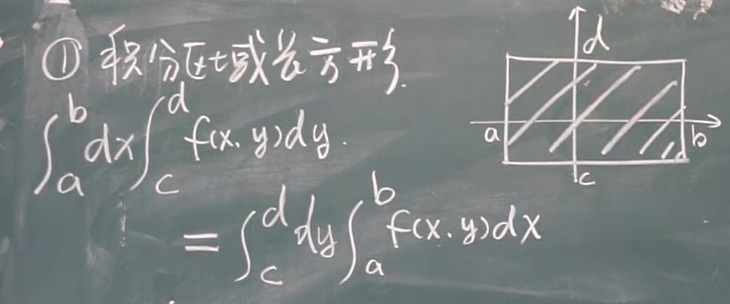 ① 积分区域长方形
∫_a^b dx ∫_c^d f(x, y)dy.
= ∫_c^d dy ∫_a^b f(x, y)dx
d
a
b
c